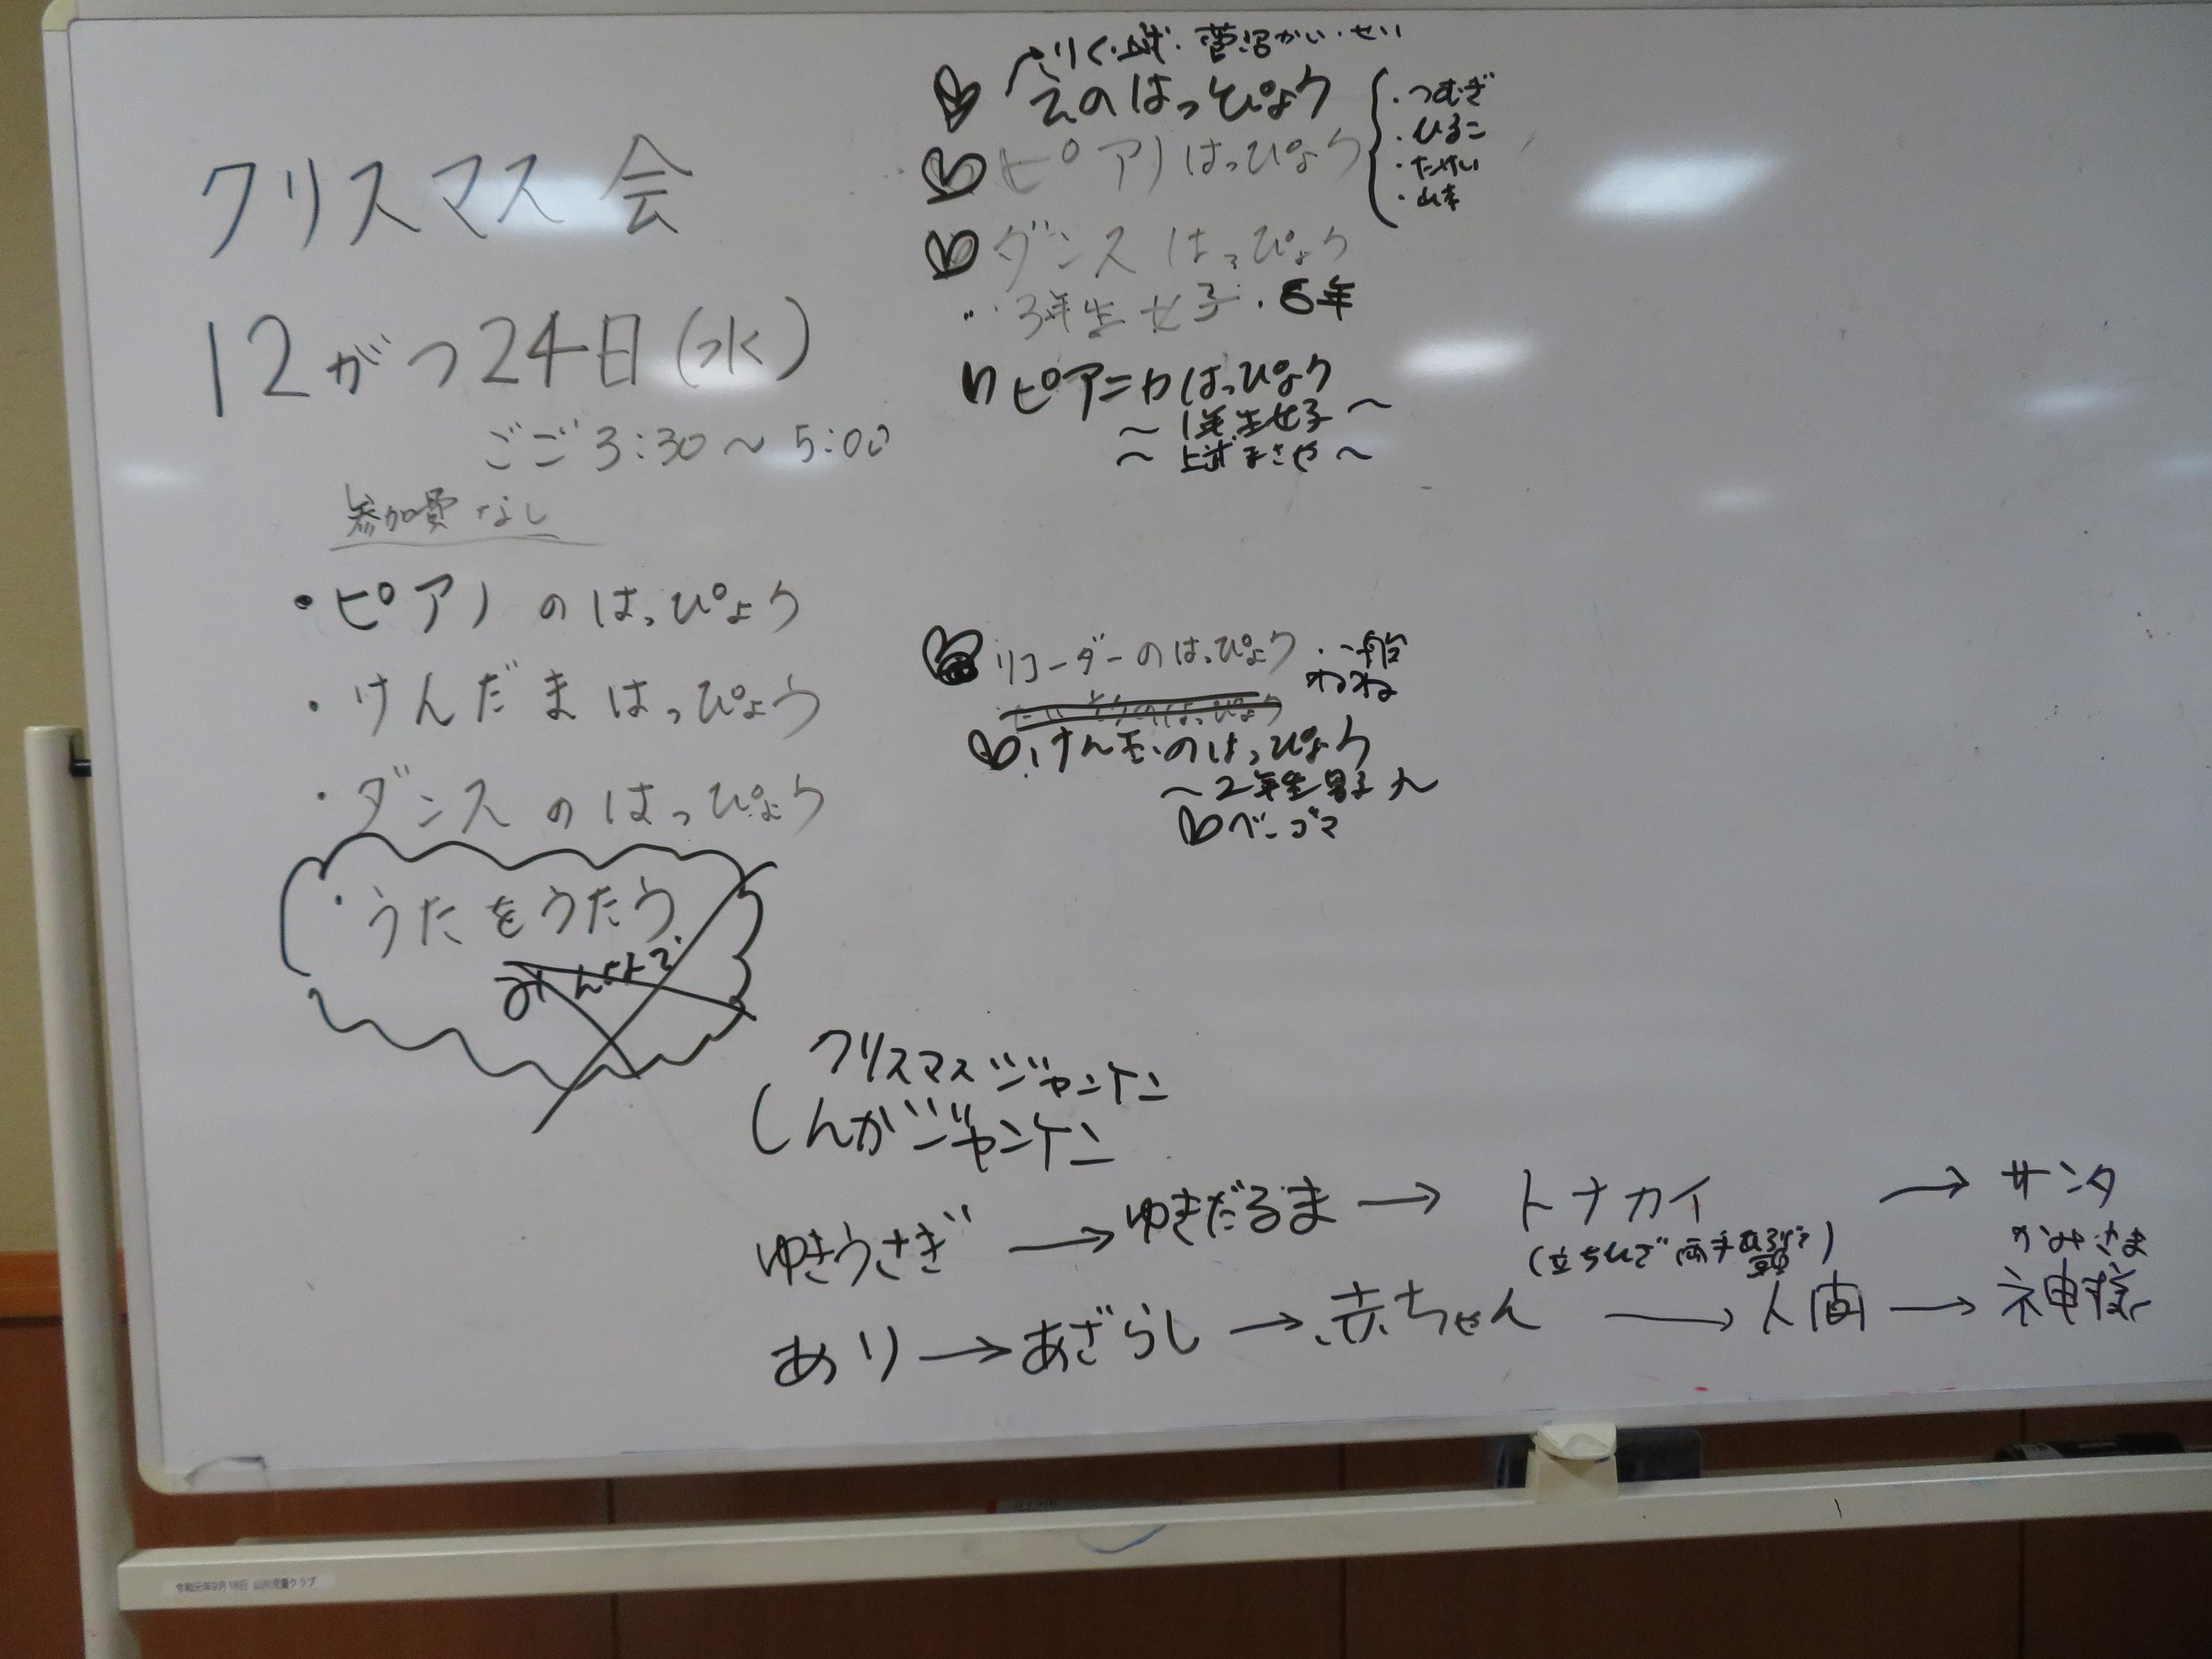 クリスマス会
12がつ24日(水)
ごご3:30～5:00
参加費なし
・ピアノのはっぴょう
・けんだまはっぴょう
・ダンスのはっぴょう
・うたをうたう
みんなで
りく・上武・菅沼かい・せい
えのはっぴょう
・つむぎ
・ひろこ
・たけい
・山本
ピアノはっぴょう
ダンスはっぴょう
3年生女子・6年
ピアニカはっぴょう
～1年生女子～
～上武まさや～
リコーダーのはっぴょう
ねね
けん玉のはっぴょう
～2年生男子～
ベーゴマ
クリスマスジャンケン
しんかジャンケン
ゆきうさぎ→ゆきだるま→トナカイ→サンタ
(立ちひざ両手頭)
かみさま
あり→あざらし→赤ちゃん→人間→神様
令和元年9月18日 山川児童クラブ